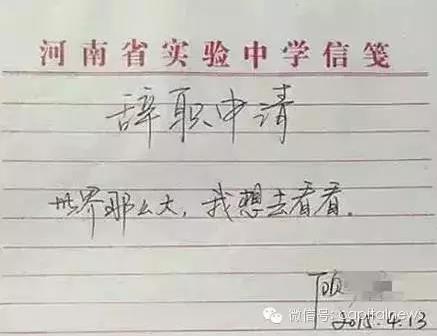 河南省实验中学信笺
辞职申请
世界那么大，我想去看看。
顾
微信号: capitalnews
2015.4.13